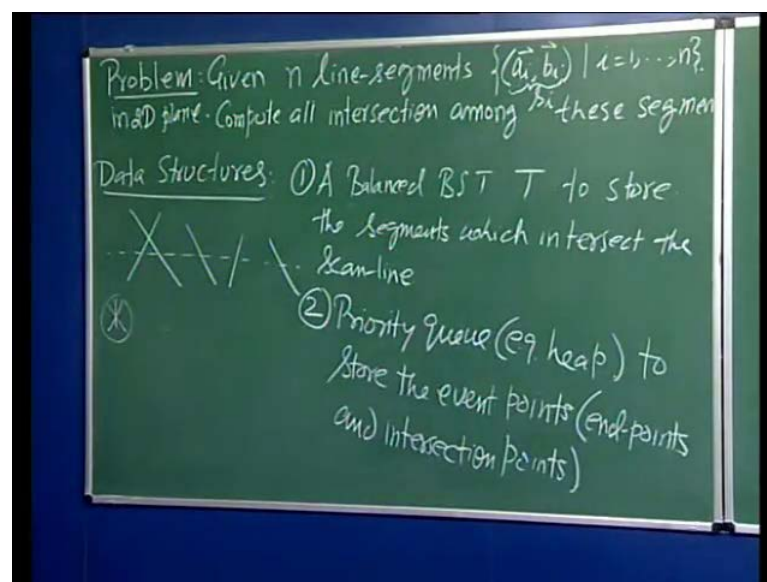 Problem: Given n line-segments {(a⃗i, b⃗i) | i=1,...,n}.
in 2D plane. Compute all intersection among these segmen
Data Structures: ① A Balanced BST T to store
the segments which intersect the
scan-line
② Priority queue (eg. heap) to
store the event points (end-points
and intersection points)